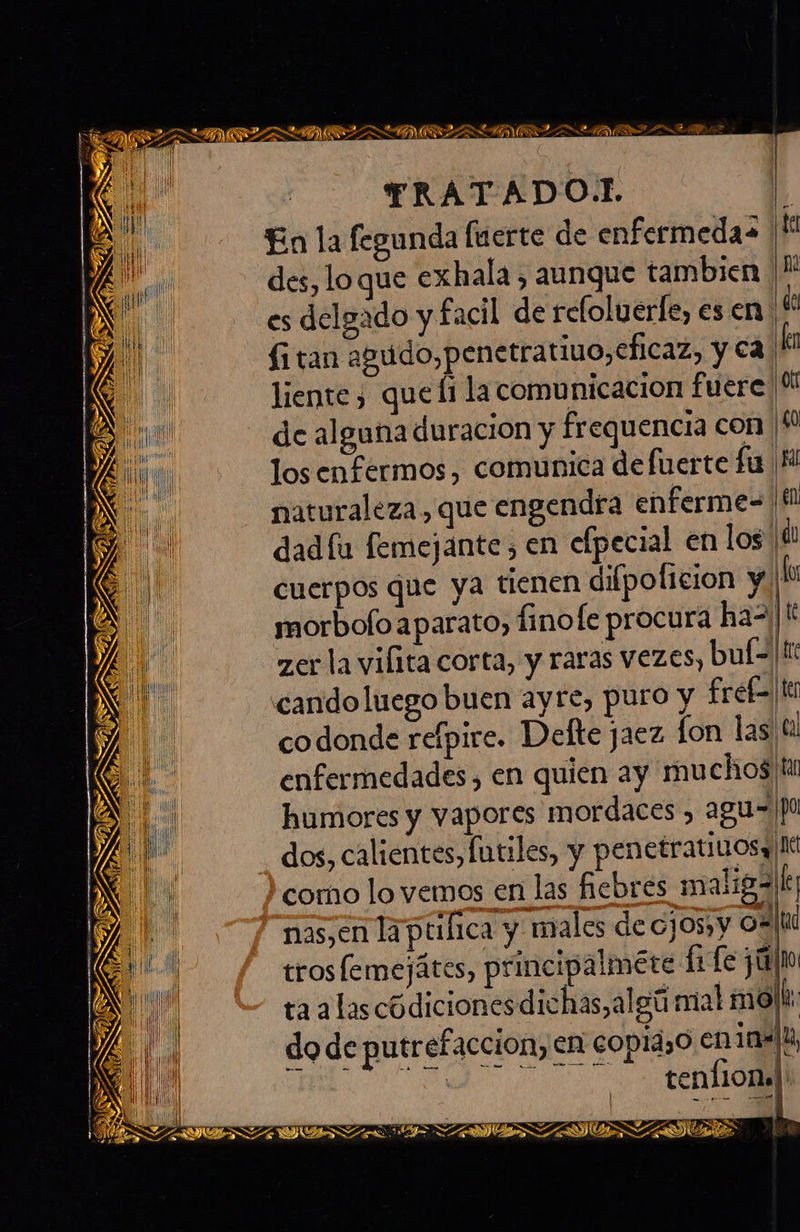 TRATADO.I.
En la ſegunda ſuerte de enfermeda-
des, lo que exhala, aunque tambien
es delgado y facil de reſoluerſe, es en
ſi tan agudo, penetratiuo, eficaz, y ca
liente; que ſi la comunicacion fuere
de alguna duracion y frequencia con
los enfermos, comunica de ſuerte ſu
naturaleza, que engendra enferme-
dad ſu ſemejante; en eſpecial en los
cuerpos que ya tienen diſpoſicion y
morboſo aparato, ſino ſe procura ha-
zer la viſita corta, y raras vezes, buſ-
cando luego buen ayre, puro y freſ-
co donde reſpire. Deſte jaez ſon las
enfermedades, en quien ay muchos
humores y vapores mordaces, agu-
dos, calientes, ſutiles, y penetratiuos,
como lo vemos en las fiebres malig-
nas, en la ptiſica y males de ojos, y o-
tros ſemejátes, principalméte ſi ſe jũ
ta a las cõdiciones dichas, algũ mal mo
do de putrefaccion, en copia, o en in-
tenſion.